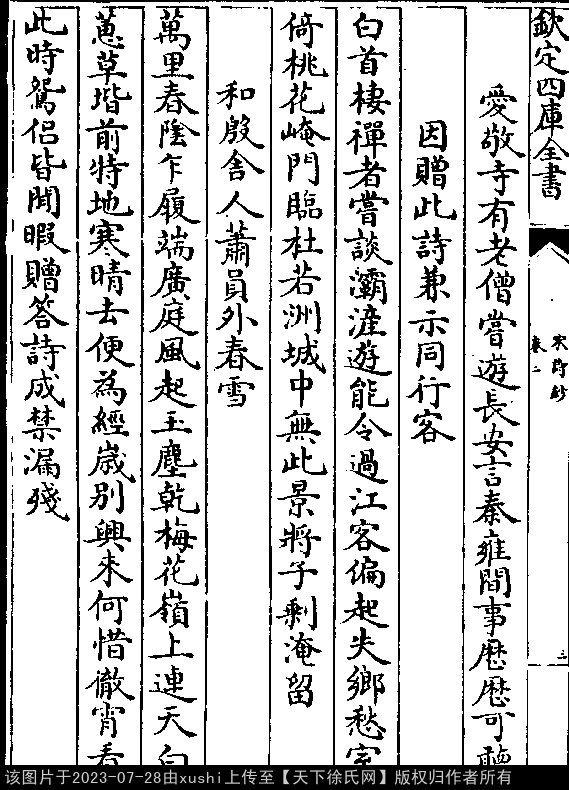 欽定四庫全書
宋詩鈔
卷二
三
愛敬寺有老僧嘗遊長安言秦雍間事歷歷可聽
因贈此詩兼示同行客
白首棲禪者嘗談灞滻遊能令過江客偏起失鄉愁室
倚桃花崦門臨杜若洲城中無此景將子剩淹留
和殷舍人蕭員外春雪
萬里春陰乍履端廣庭風起玉塵乾梅花嶺上連天白
蕙草堦前特地寒晴去便為經嵗別興來何惜徹宵看
此時鴛侣皆閒暇贈答詩成禁漏殘
该图片于2023-07-28由xushi上传至【天下徐氏网】版权归作者所有